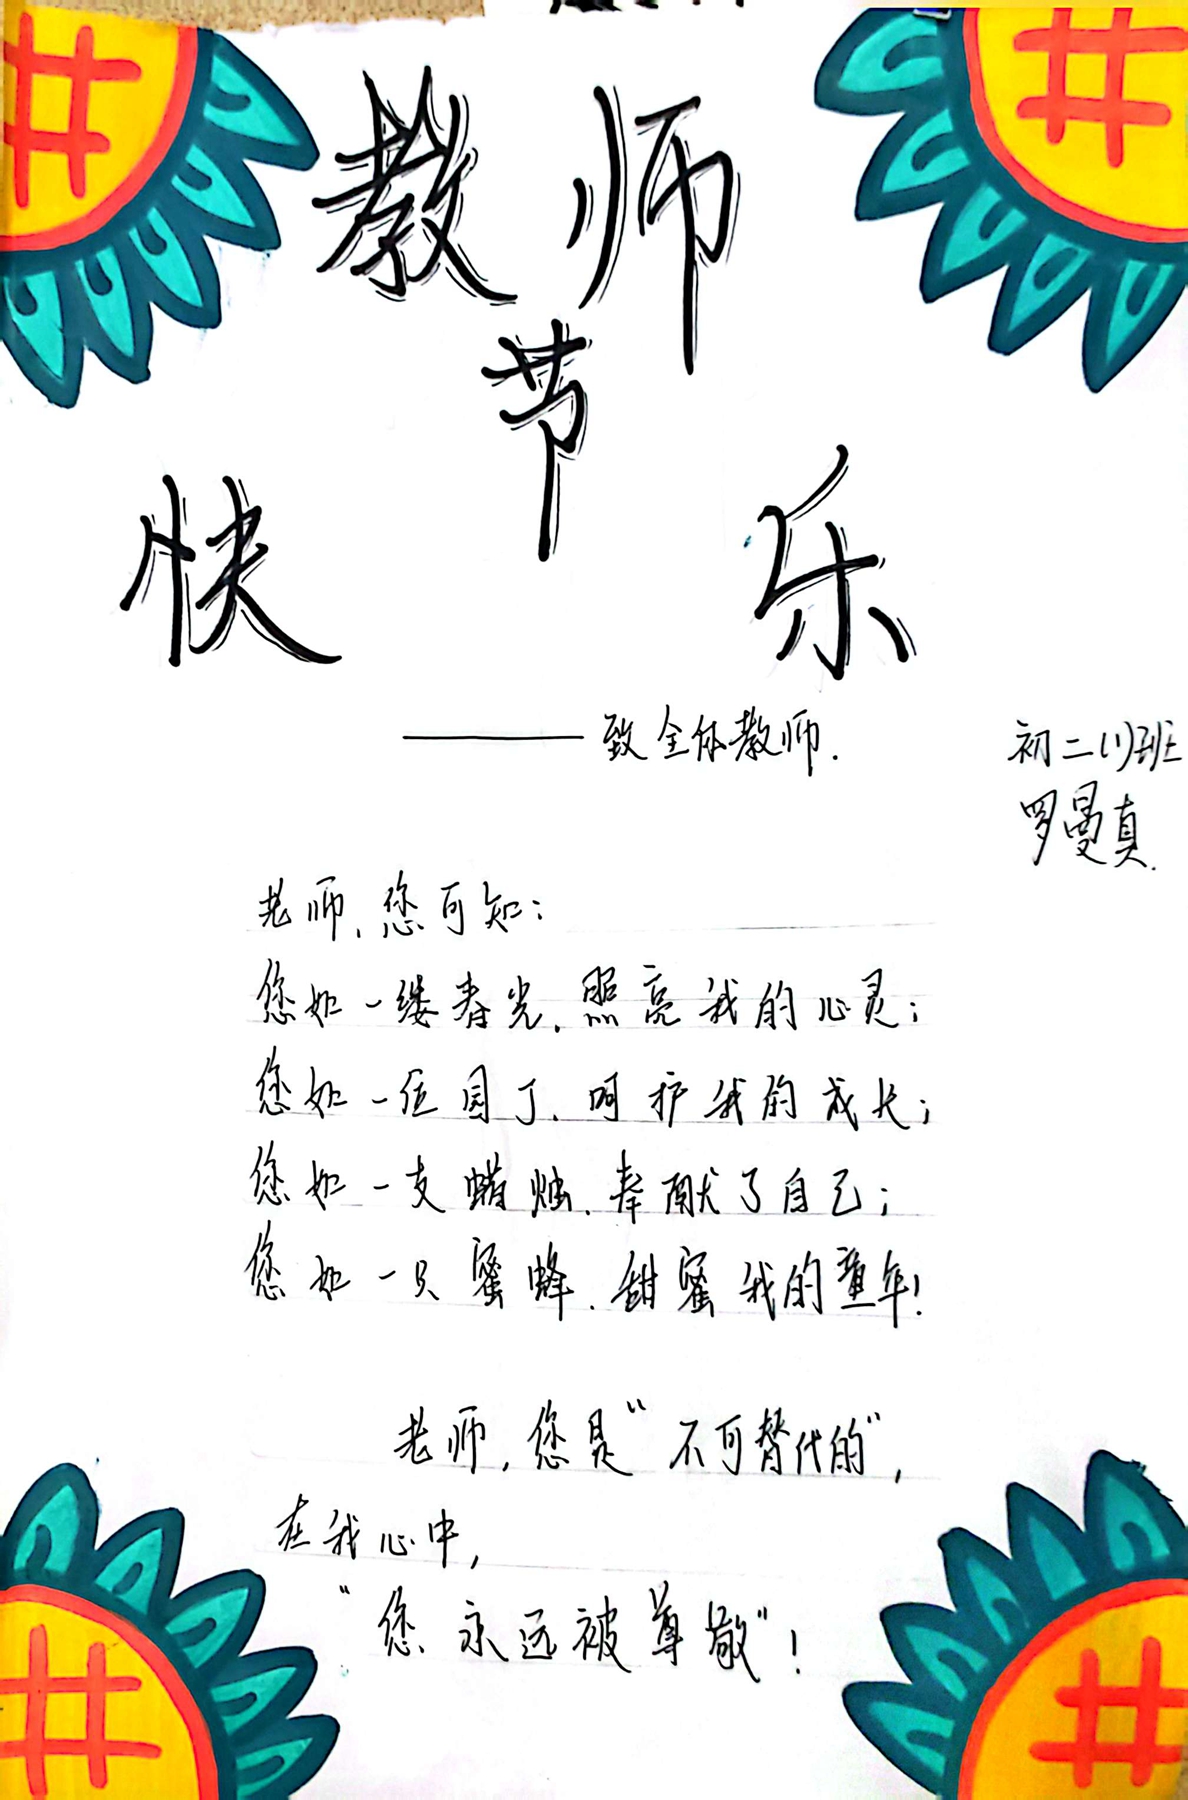 教师
节
快乐
——致全体教师.
初二(1)班
罗曼真.
老师,您可知:
您如一缕春光,照亮我的心灵;
您如一位园丁,呵护我的成长;
您如一支蜡烛,奉献了自己;
您如一只蜜蜂,甜蜜我的童年!
老师,您是“不可替代的”,
在我心中,
“您永远被尊敬”!